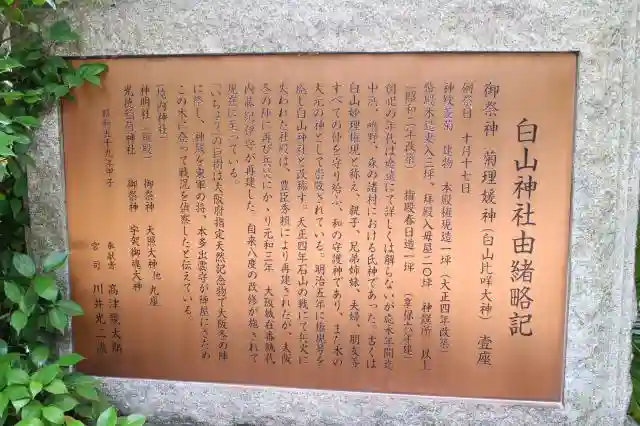 白山神社由緒略記
御祭神 菊理媛神(白山比咩大神) 壹座
例祭日 十月十七日
神殿参籠 建物 本殿権現造一坪(大正四年改築)
幣殿木造妻入三坪、拝殿入母屋二〇坪 神饌所 以上
(昭和二年改築) 指殿春日造一坪 (享保六年建)
創祀の年代は悠遠にて詳しくは解らないが応永年間迄
中浜、鴫野、森の諸村における氏神であった。古くは
白山妙理権現と称え、親子、兄弟姉妹、夫婦、朋友等
すべての仲を守り給ふ、和の守護神であり、また水の
大元の神として崇敬されている。明治五年に権現号を
廃し白山神社と改称す。天正四年石山の戦にて兵火に
失われた社殿は、豊臣秀頼により再建されたが、大阪
冬の陣に再び兵災にかゝり元和三年 大阪城在番城代
内藤紀伊守が再建した、自来八度の改修が施されて
現在に至っている。
「いちょう」の巨樹は大阪府指定天然記念物で大阪冬の陣
に際し、神域を東軍の将、本多出雲守が陣屋にくため
この木に登って戦況を偵察したと伝えている。
(境内神社)
神明社(指殿) 御祭神 天照大神他九座
光徳稲荷神社 御祭神 宇賀御魂大神
昭和五十九年甲子
奉献者 高津龍太郎
宮司 川井光二識